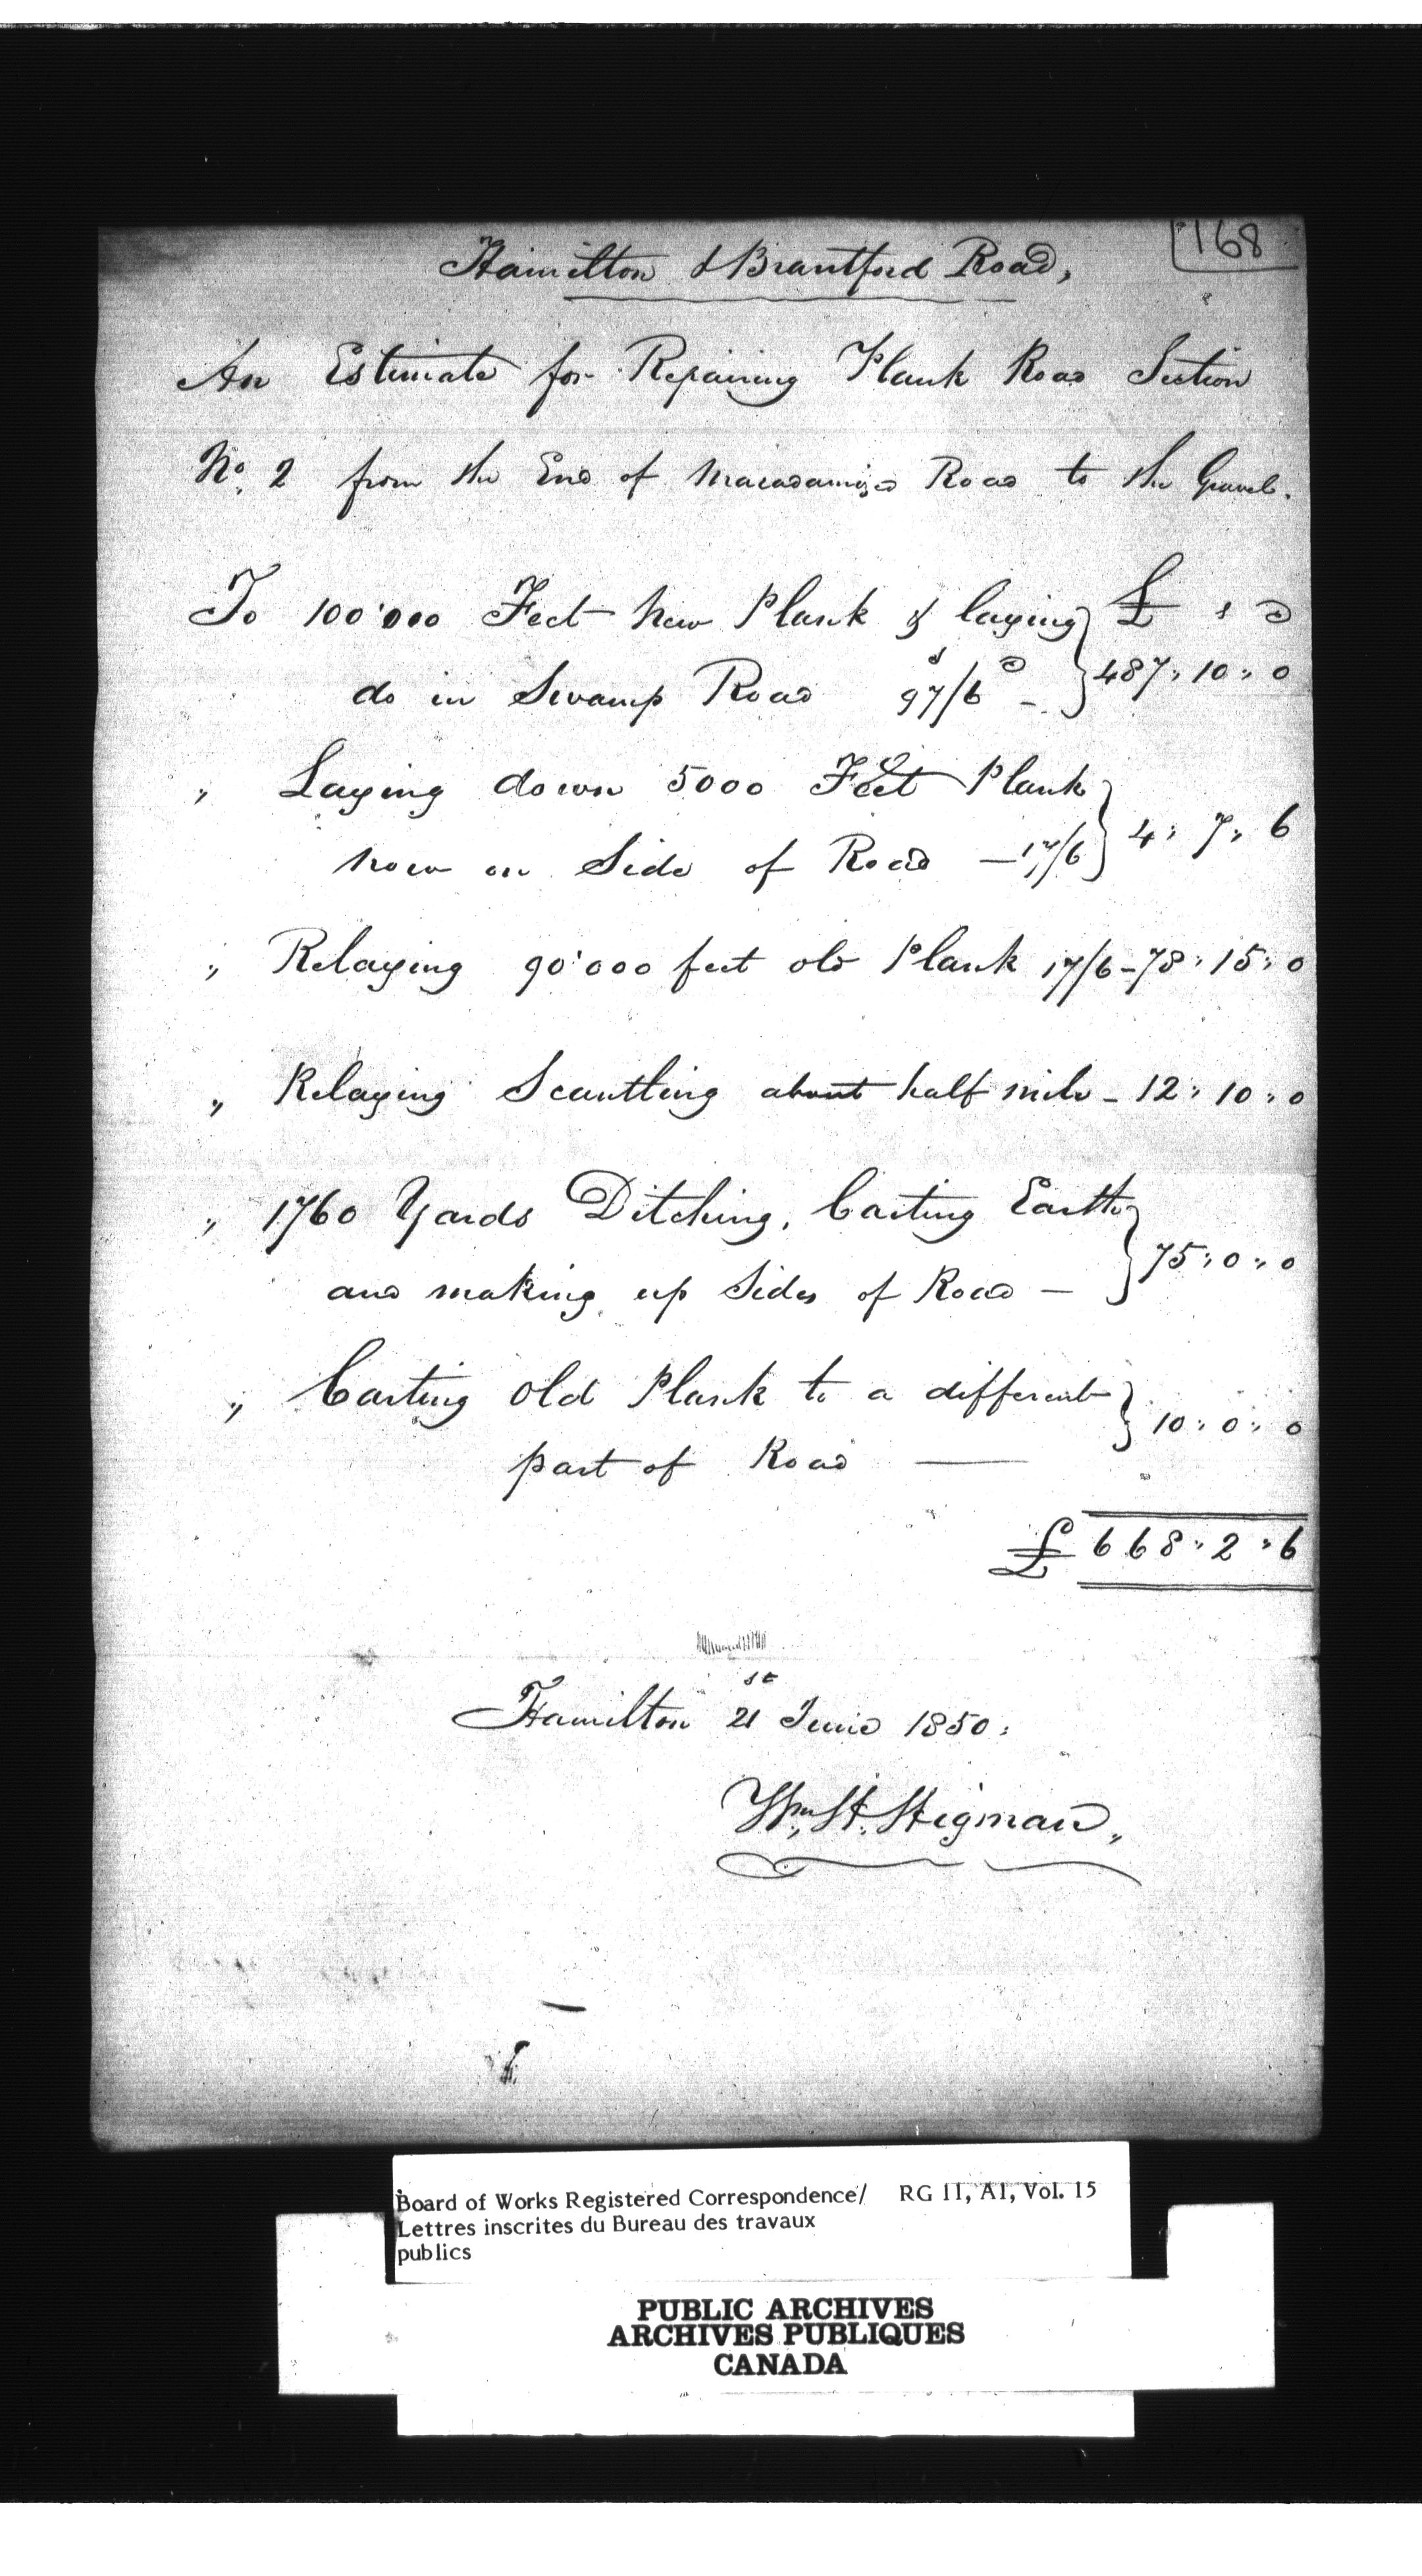 168
Hamilton & Brantford Road,
An Estimate for Repairing Plank Road Section
No. 2 from the End of Macadamized Road to the Gravel.
To 100'000 Feet New Plank & laying } £ s d
do in Swamp Road 97/6 - } 487 " 10 " 0
s d
" Laying down 5000 Feet Plank }
now on Side of Road - 17/6 } 4 " 7 " 6
" Relaying 90'000 feet old Plank 17/6 - 78 " 15 " 0
" Relaying Scantling about half mile - 12 " 10 " 0
" 1760 Yards Ditching, Carting Earth }
and making up Sides of Road - } 75 " 0 " 0
" Carting old Plank to a different }
part of Road — } 10 " 0 " 0
£ 668 " 2 " 6
Hamilton 21st June 1850.
Wm. H. Higman,
Board of Works Registered Correspondence/ RG 11, A1, Vol. 15
Lettres inscrites du Bureau des travaux
publics
PUBLIC ARCHIVES
ARCHIVES PUBLIQUES
CANADA